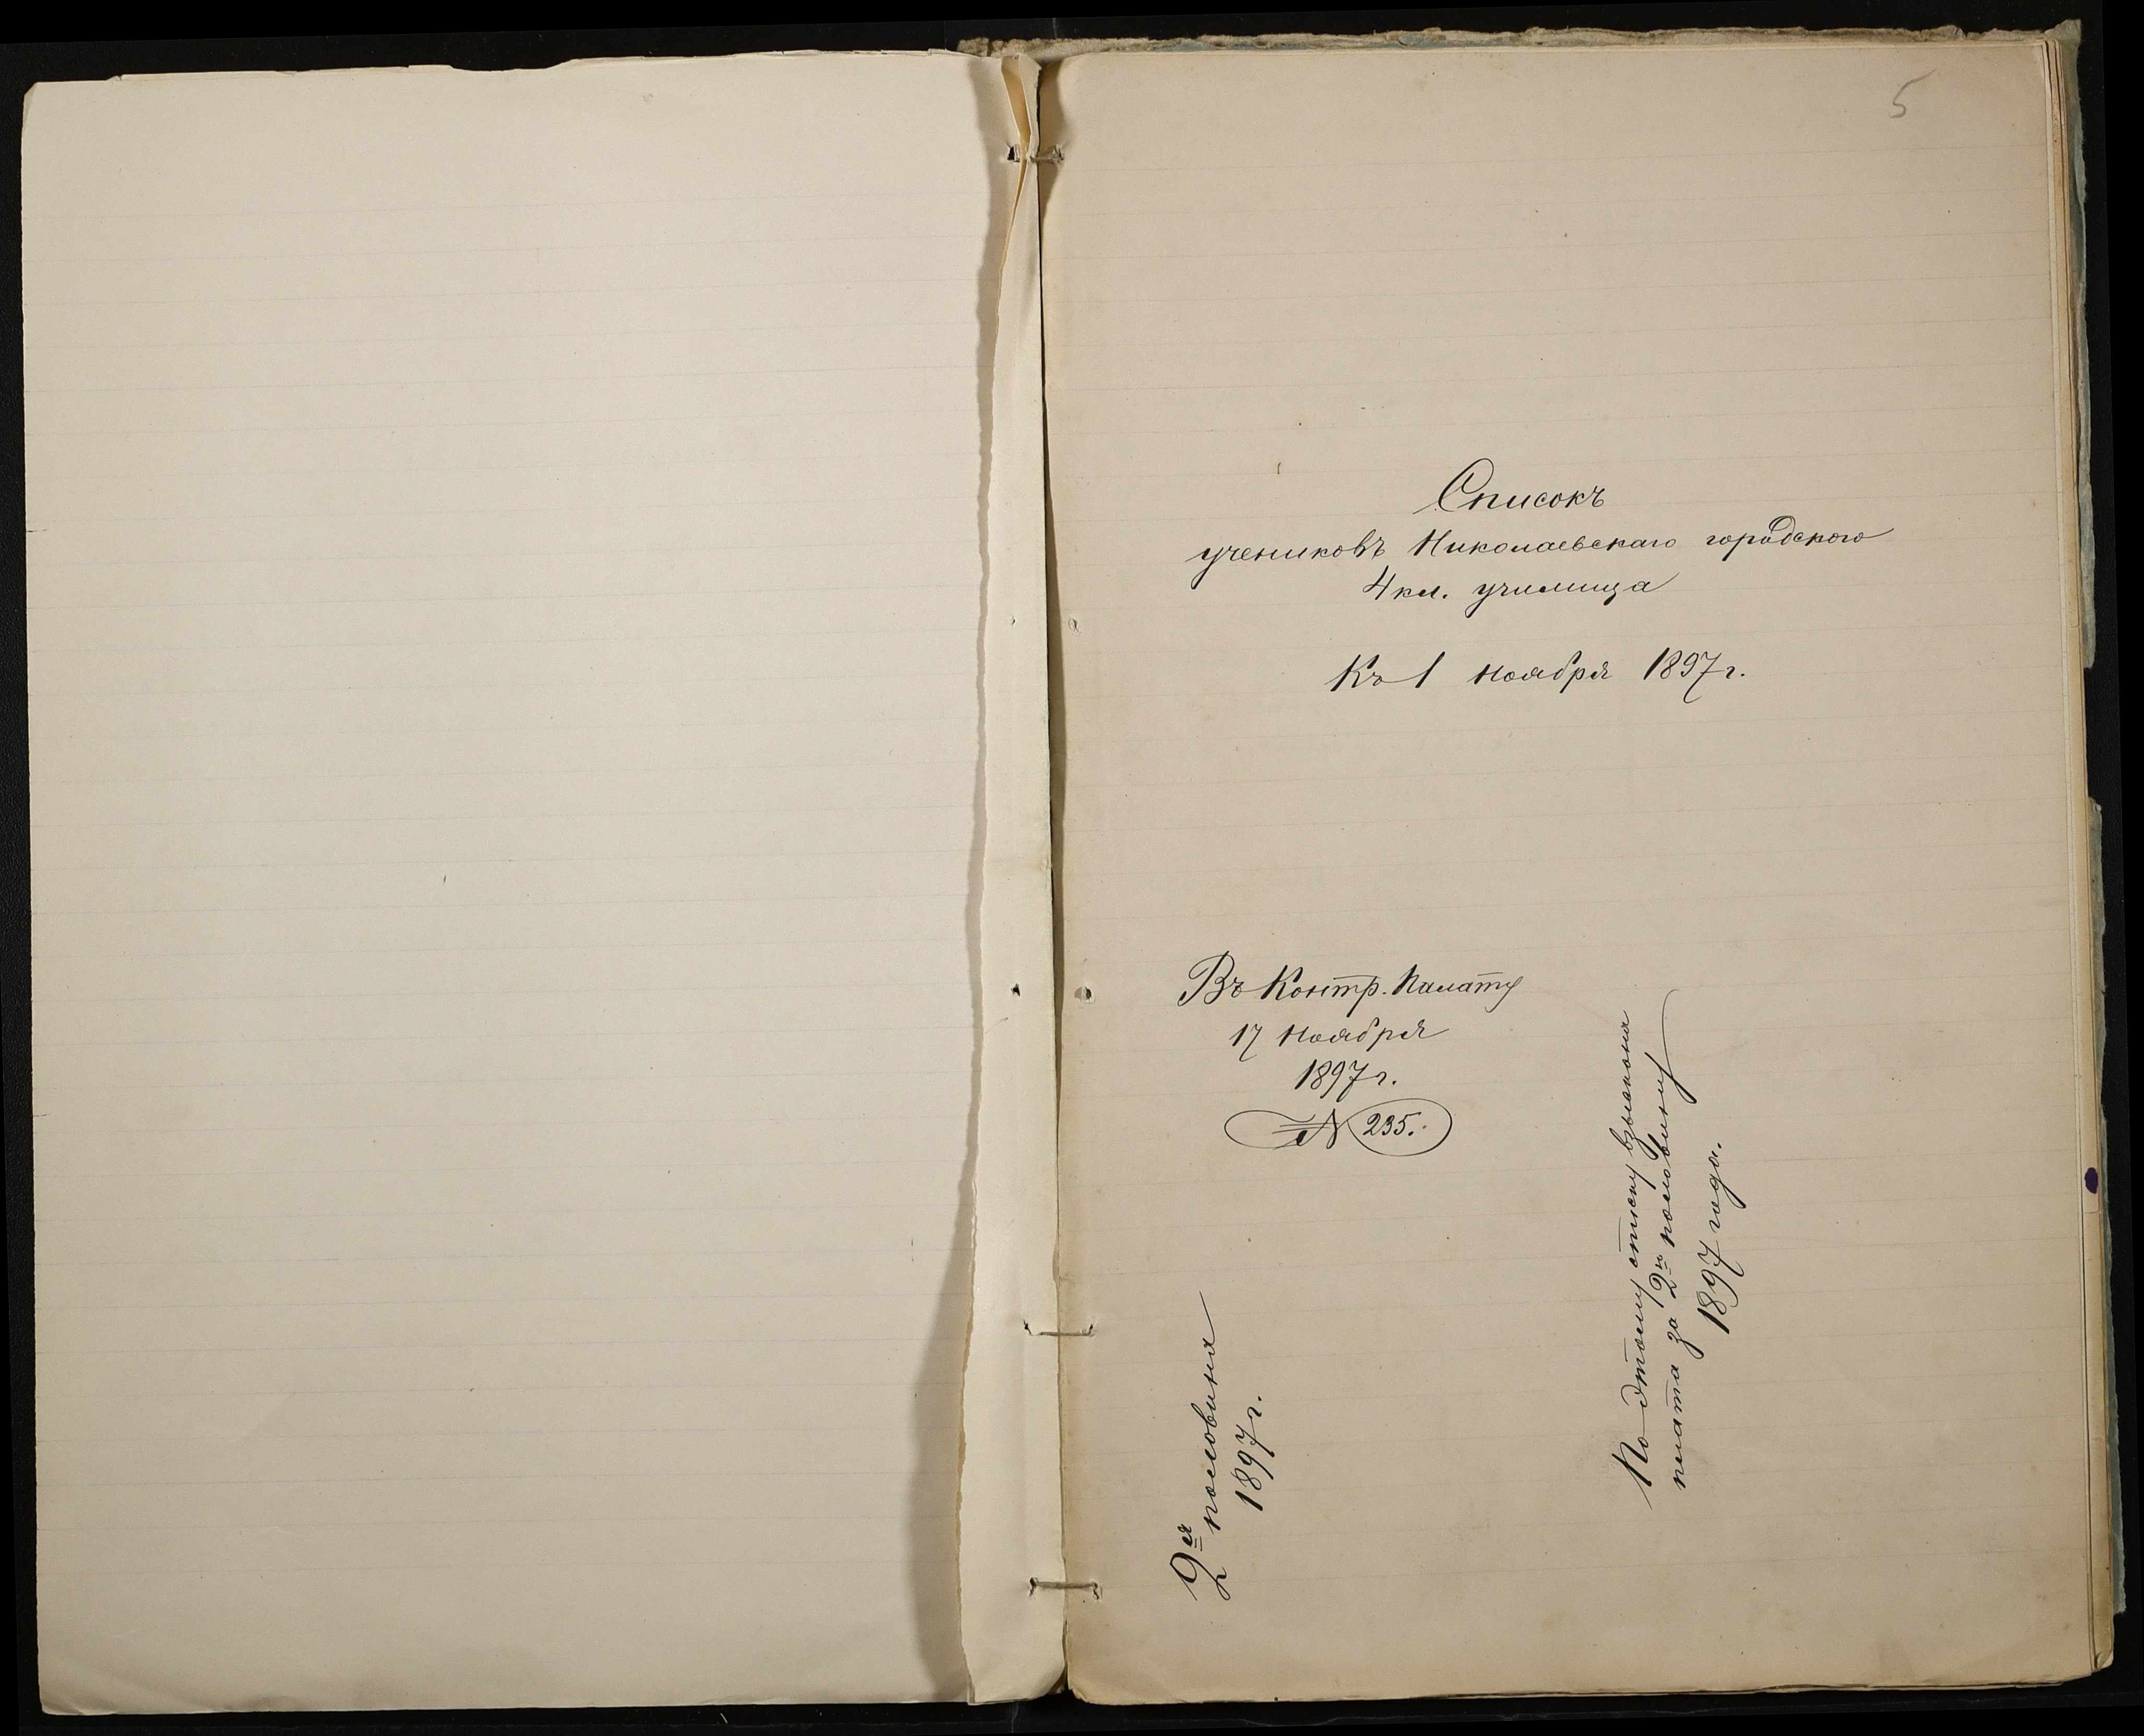 5
Списокъ
учениковъ Николаевскаго городского
4 кл. училища
Къ 1 ноября 1897 г.
Въ Контр. Палату
17 ноября
1897 г.
№ 235.
2ая половина
1897 г.
По этому списку взыскана
плата за 2ю половину
1897 года.